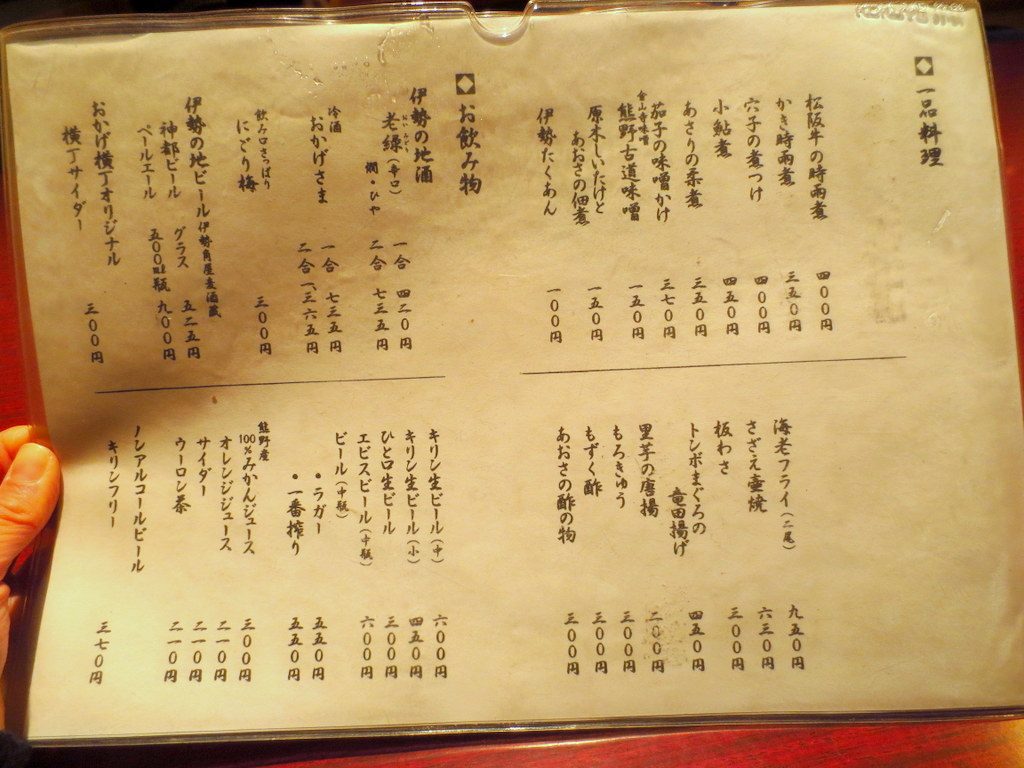 ◇一品料理
松阪牛の時雨煮 四〇〇円
かき時雨煮 三五〇円
穴子の煮つけ 四〇〇円
小鮎煮 四五〇円
あさりの柔煮 三五〇円
茄子の味噌かけ 三七〇円
金山寺味噌
熊野古道味噌 一五〇円
原木しいたけと
あおさの佃煮 一五〇円
伊勢たくあん 一〇〇円
海老フライ(二尾) 九五〇円
さざえ壷焼 六三〇円
板わさ 三〇〇円
トンボまぐろの
竜田揚げ 四五〇円
里芋の唐揚 二〇〇円
もろきゅう 三〇〇円
もずく酢 三〇〇円
あおさの酢の物 三〇〇円
◇お飲み物
伊勢の地酒
老緑(辛口) 一合 四二〇円
燗・ひや 二合 七三五円
冷酒
おかげさま 一合 七三五円
二合 一、三六五円
飲み口さっぱり
にごり梅 三〇〇円
伊勢の地ビール 伊勢角屋麦酒蔵
神都ビール グラス 五二五円
ペールエール 五〇〇ml瓶 九〇〇円
おかげ横丁オリジナル
横丁サイダー 三〇〇円
キリン生ビール(中) 六〇〇円
キリン生ビール(小) 四五〇円
ひと口生ビール 三〇〇円
エビスビール(中瓶) 六〇〇円
ビール(中瓶)
・ラガー 五五〇円
・一番搾り 五五〇円
熊野産
100%みかんジュース 三〇〇円
オレンジジュース 二一〇円
サイダー 二一〇円
ウーロン茶 二一〇円
ノンアルコールビール
キリンフリー 三七〇円